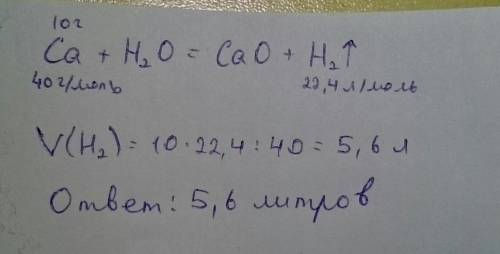 10г
Ca + H₂O = CaO + H₂↑
40г/моль 22,4 л/моль
V(H₂) = 10·22,4 : 40 = 5,6 л
Ответ: 5,6 литров